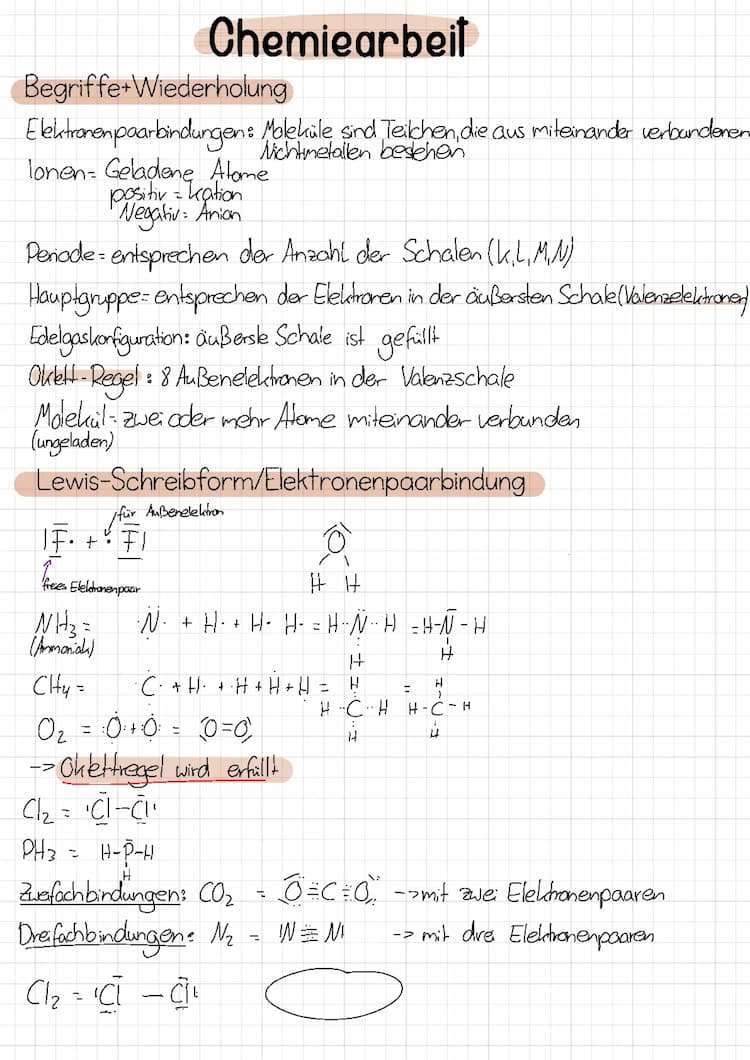 Chemiearbeit
Begriffe+Wiederholung
Elektronenpaarbindungen: Moleküle sind Teilchen, die aus miteinander verbundenen
Nichtmetallen bestehen
Ionen= Geladene Atome
positiv = Kation
Negativ= Anion
Periode= entsprechen der Anzahl der Schalen (K,L,M,N)
Hauptgruppe= entsprechen der Elektronen in der äußersten Schale (Valenzelektronen)
Edelgaskonfiguration: äußerste Schale ist gefüllt
Oktett-Regel: 8 Außenelektronen in der Valenzschale
Molekül= zwei oder mehr Atome miteinander verbunden
(ungeladen)
Lewis-Schreibform/Elektronenpaarbindung
für Außenelektron
|F· + ·F|
O
freies Elektronenpaar
H H
NH₃ = ·N· + H· + H· H· = H··N··H = H-N-H
(Ammoniak)
H H
CH₄ = ·C· + H· + ·H + H + H = H = H
H··C··H H-C-H
H H
O₂ = :O·+·O: = O=O
-> Oktettregel wird erfüllt
Cl₂ = |Cl-Cl|
PH₃ = H-P-H
H
Zweifachbindungen: CO₂ = O=C=O -> mit zwei Elektronenpaaren
Dreifachbindungen: N₂ = |N≡N| -> mit drei Elektronenpaaren
Cl₂ = |Cl — Cl|